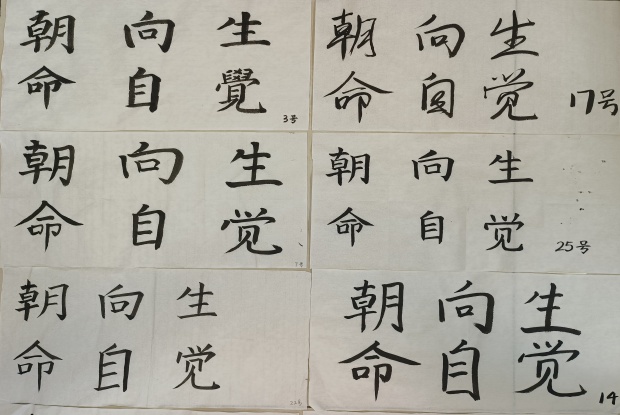 朝向生
命自覺
3号
朝向生
命自觉
17号
朝向生
命自觉
朝向生
命自觉
25号
朝向生
命自觉
朝向生
命自觉
14